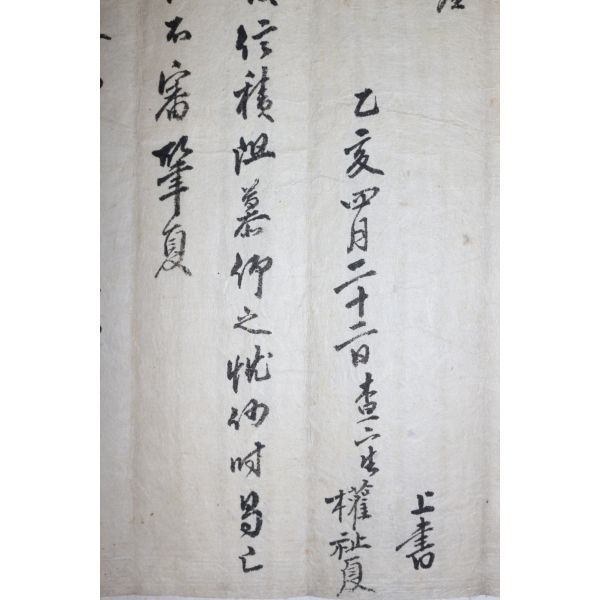 上書
乙亥四月二十二日查下生權祉夏
信積阻慕仰之忱何時曷已
不審肇夏